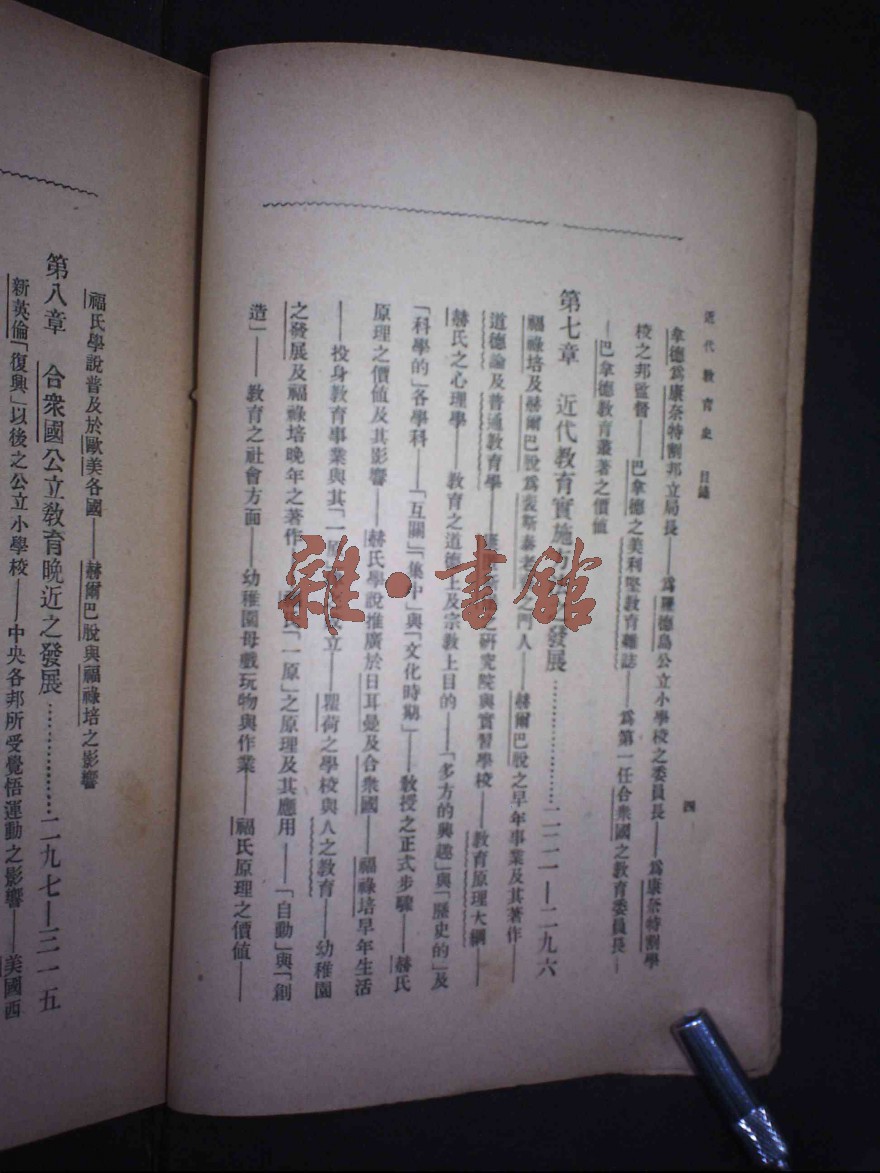 近代教育史 目錄
四
拿德為康奈特割邦立局長——為羅德島公立小學校之委員長——為康奈特割學
校之邦監督——巴拿德之美利堅教育雜誌——為第一任合衆國之教育委員長——
——巴拿德教育叢著之價值
第七章 近代教育實施 之發展…………二二一—二九六
福祿培及赫爾巴脫為裴斯泰 之門人——赫爾巴脫之早年事業及其著作——
道德論及普通教育學—— 之研究院與實習學校——教育原理大綱——
赫氏之心理學——教育之道德上及宗教上目的——「多方的興趣」與「歷史的」及
「科學的」各學科——「互關」「集中」與「文化時期」——教授之正式步驟——赫氏
原理之價值及其影響——赫氏學說推廣於日耳曼及合衆國——福祿培早年生活
——投身教育事業與其「一原 立——瞿荷之學校與人之教育——幼稚園
之發展及福祿培晚年之著作 「一原」之原理及其應用——「自動」與「創
造」——教育之社會方面——幼稚園母戲玩物與作業——福氏原理之價值——
福氏學說普及於歐美各國——赫爾巴脫與福祿培之影響
第八章 合衆國公立教育晚近之發展…………二九七—三一五
新英倫「復興」以後之公立小學校——中央各邦所受覺悟運動之影響——美國西
雜·書館